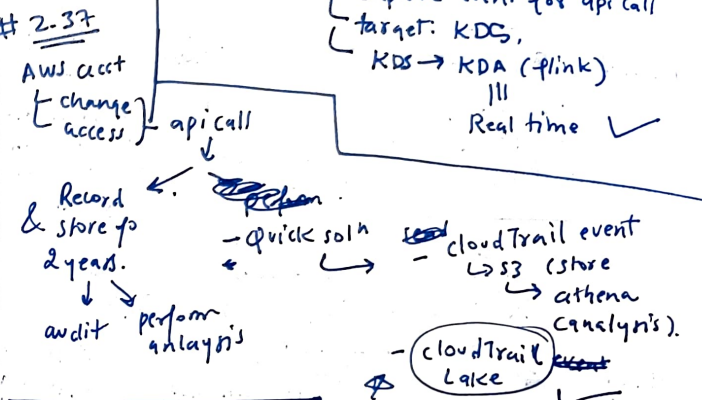 for api call
target: KDG,
KDS → KDA (flink)
Real time ✓
# 2.37
AWS acct
change
access
api call
Record
& store fo
2 years.
audit
perform
anlaysis
- Quick solⁿ
- cloudTrail event
↳ S3 (store
↳ athena
(analysis).
- cloudTrail
Lake